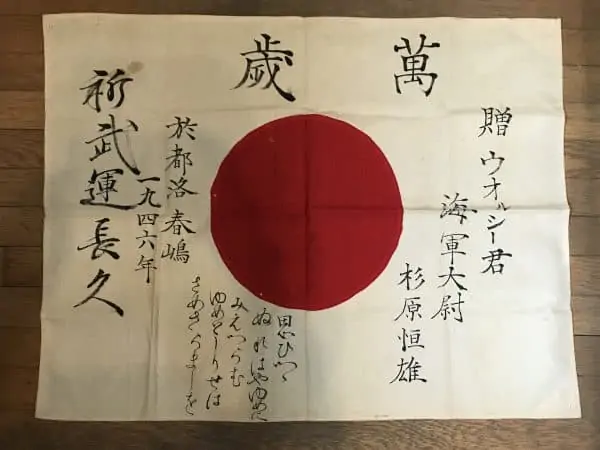 萬歲
贈 ウオルシー君
海軍大尉
杉原恒雄
思ひつゝ
ぬればやゆめに
みえつらむ
ゆめとしりせは
さめさらましを
於都洛春嶋
一九四六年
祈武運長久